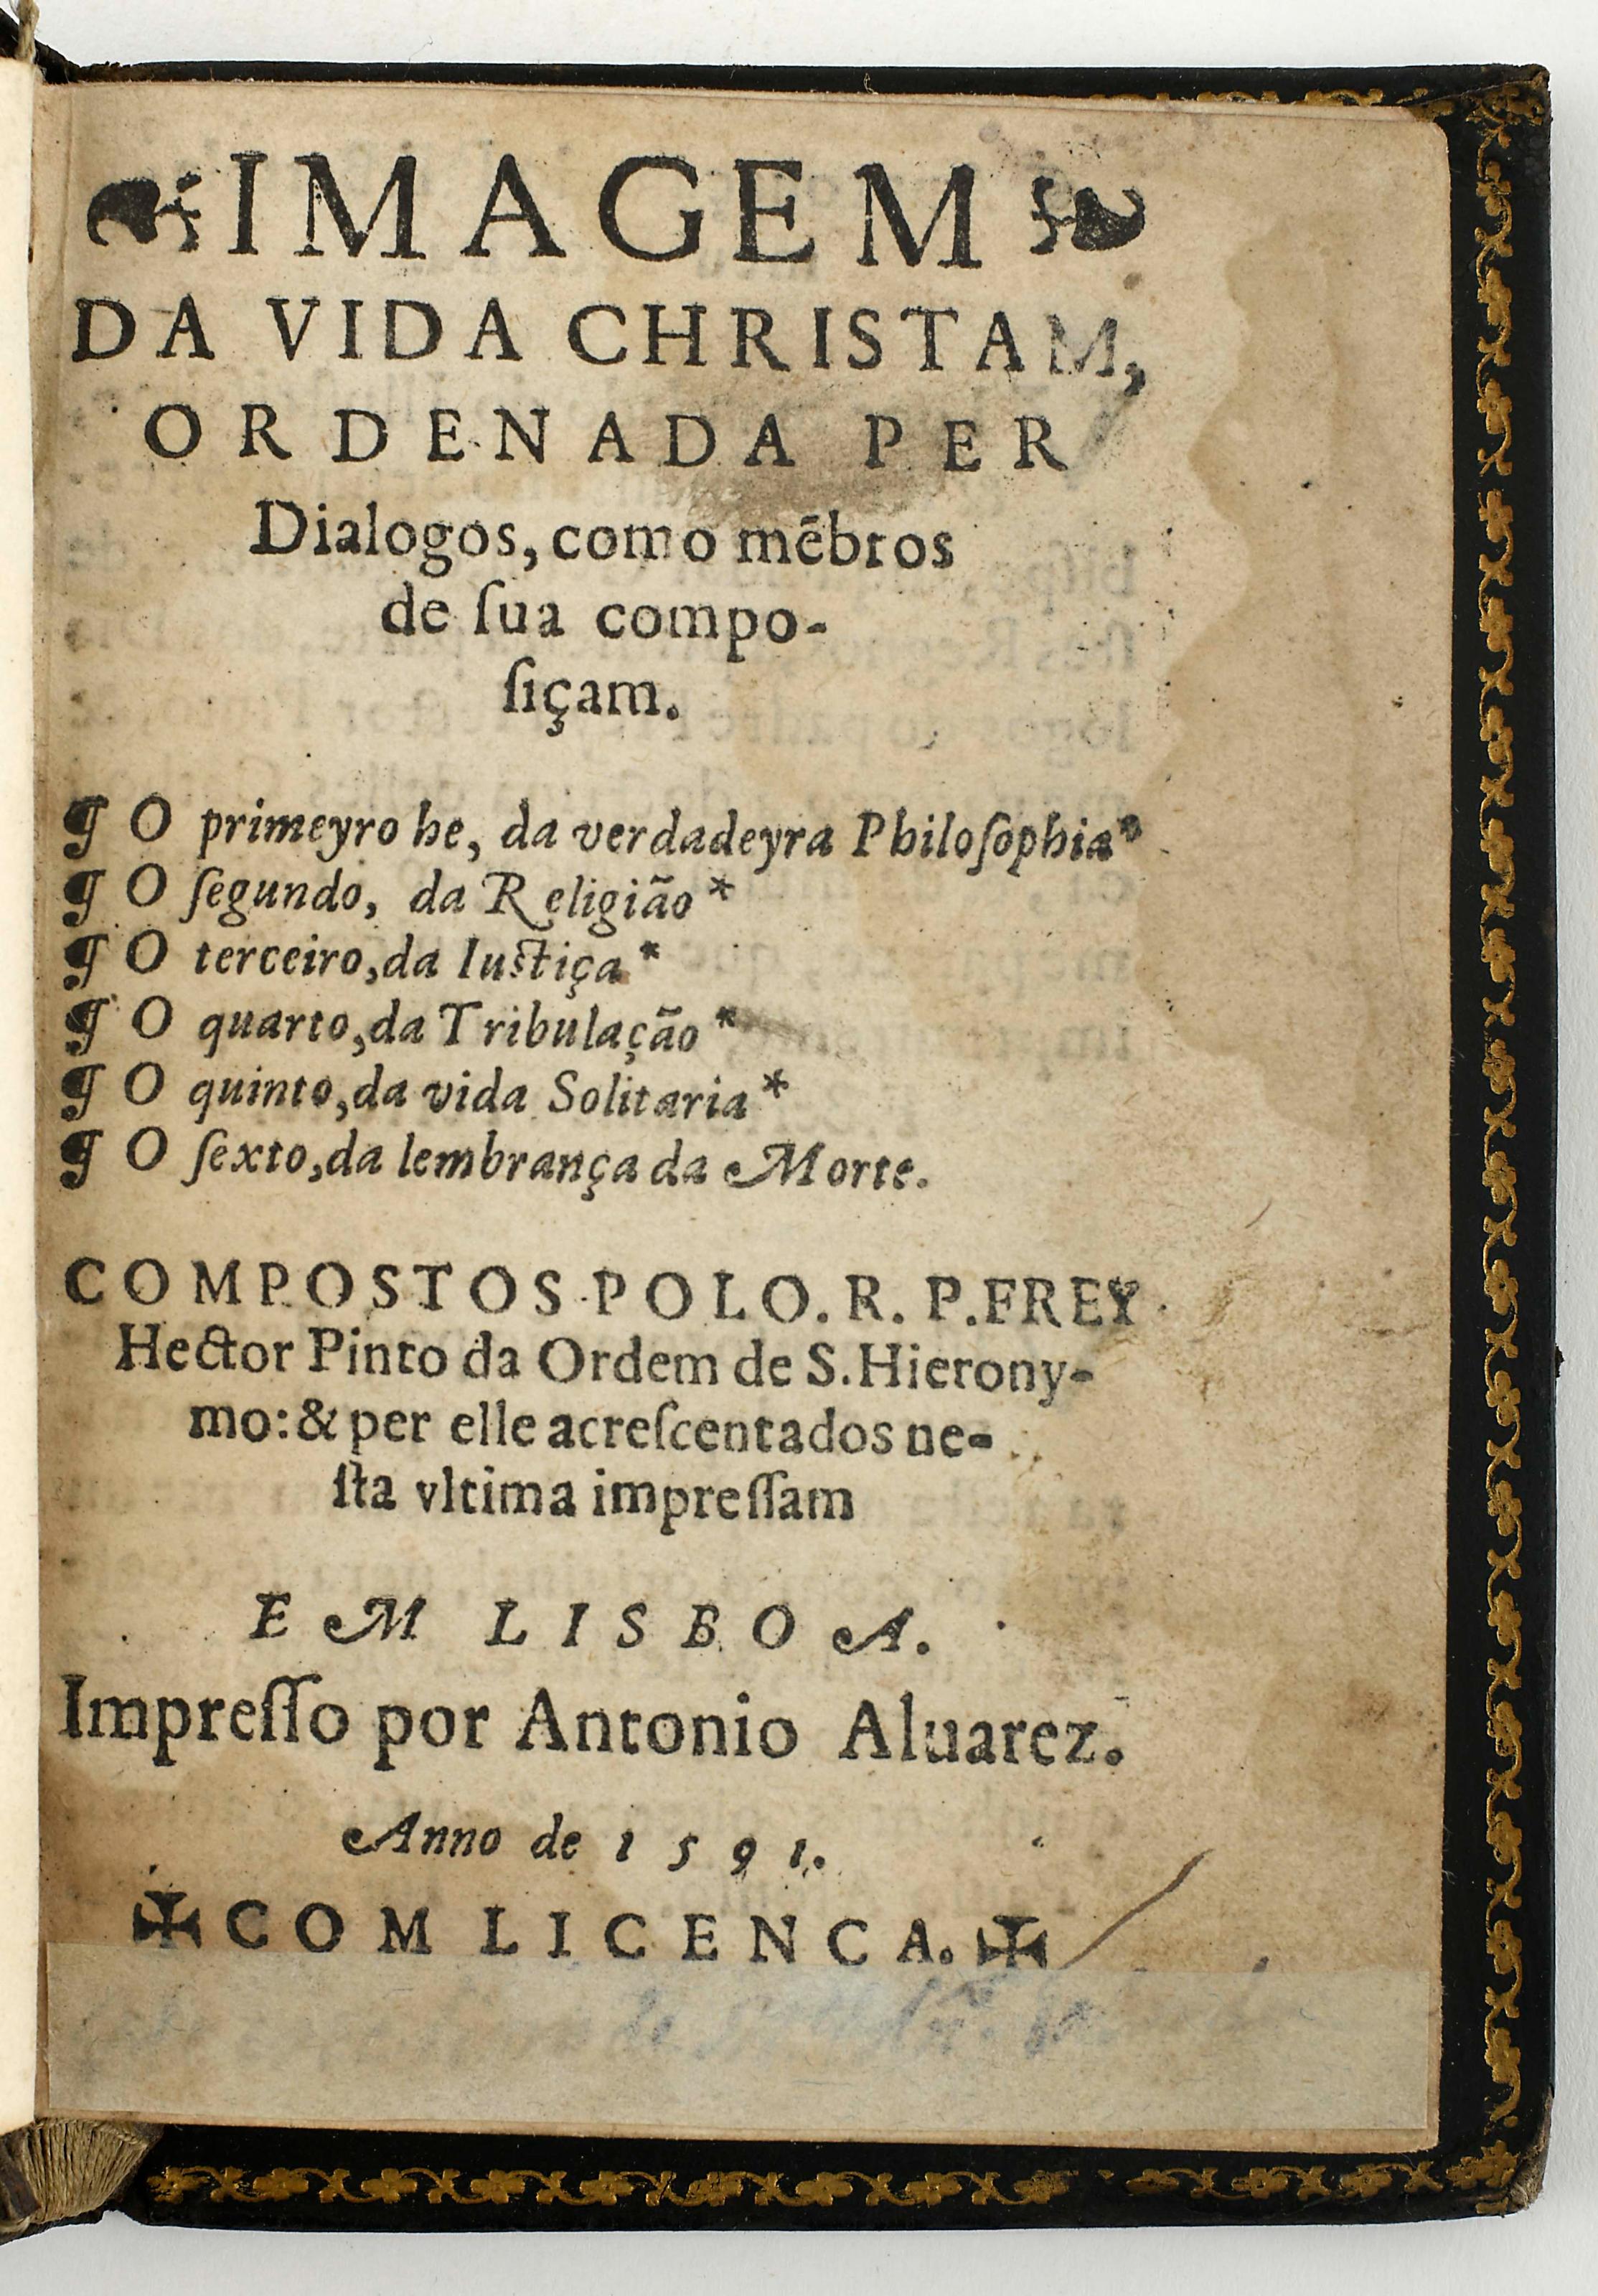 IMAGEM
DA VIDA CHRISTAM,
ORDENADA PER
Dialogos, como mēbros
de ſua compo-
ſiçam.
¶ O primeyro he, da verdadeyra Philoſophia*
¶ O ſegundo, da Religião*
¶ O terceiro, da Iuſtiça*
¶ O quarto, da Tribulação*
¶ O quinto, da vida Solitaria*
¶ O ſexto, da lembrança da Morte.
COMPOSTOS POLO. R. P. FREY
Hector Pinto da Ordem de S. Hierony-
mo: & per elle acreſcentados ne-
ſta vltima impreſſam
EM LISBOA.
Impreſſo por Antonio Aluarez.
Anno de 1591.
✠ COM LICENCA. ✠